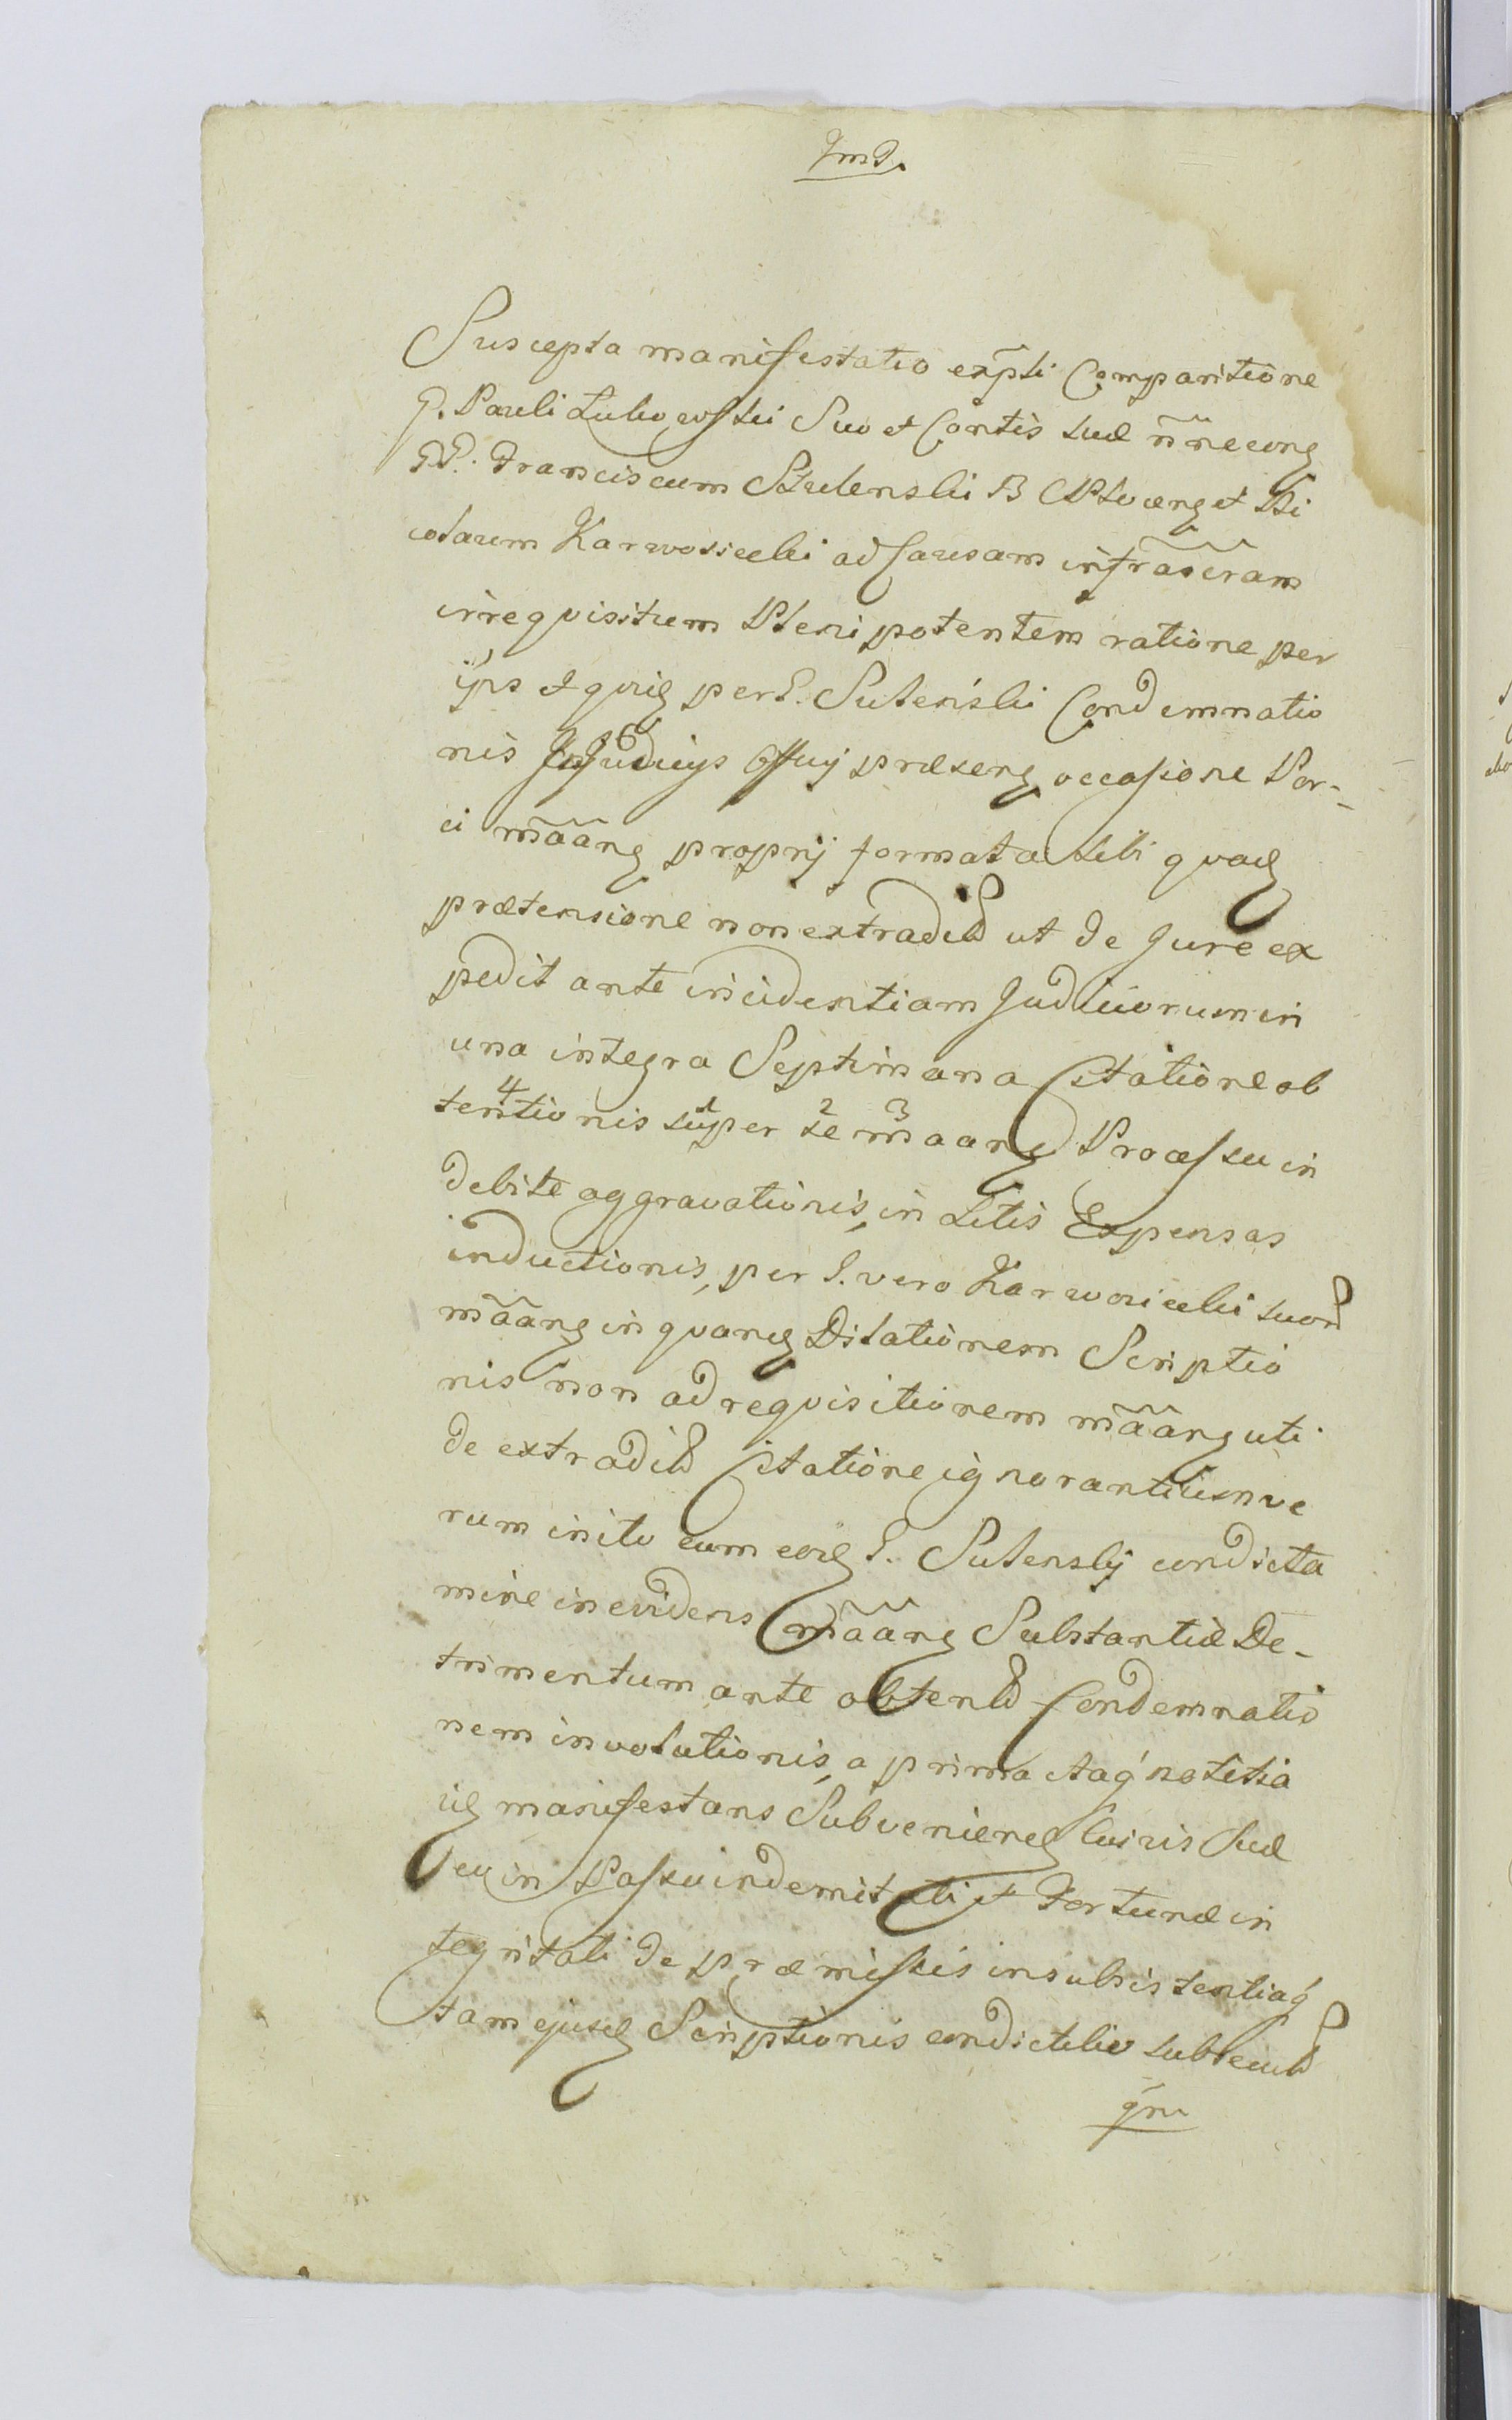 Suscepta manifestatio expti Comparitione
G. Pauli Lubowski Suo et Contis suæ nne cong
GG. Franciscum Sulenski B et Ni
colaum Karwosiecki ad Causam infrascram
irrequisitum Plenipotentem ratione per
ips et qvid per G. Sulenski Condemnatio
nis In Judicijs Offij præseng occasione Por-
ci maang proprij formata sibi qvad
prætensione non extradid ut de Jure ex
pedit ante incidentiam Judiciorum in
una integra Septimana Citatione ob
4 1 2 3
tentionis super se maang Processu in
debite aggravationis, in Litis Expensas
inductionis, per G. vero Karwosiecki suord
maang in qvang Dilationem Scriptio
nis non ad reqvisitionem maang uti
de extradid Citatione ignorantium ve
rum inito cum eod G. Sulenskij condicta
mine in evidens maang Substantiæ De-
trimentum ante obtentd Condemnatio
nem involutionis, a prima notitia
id manifestans Subveniend Juris Suæ
seu in Passu indemitati et Fortunæ in
tegritati de præmissis insubsistentiaq
tam ejusd Scriptionis condictitio subsecutd
qru